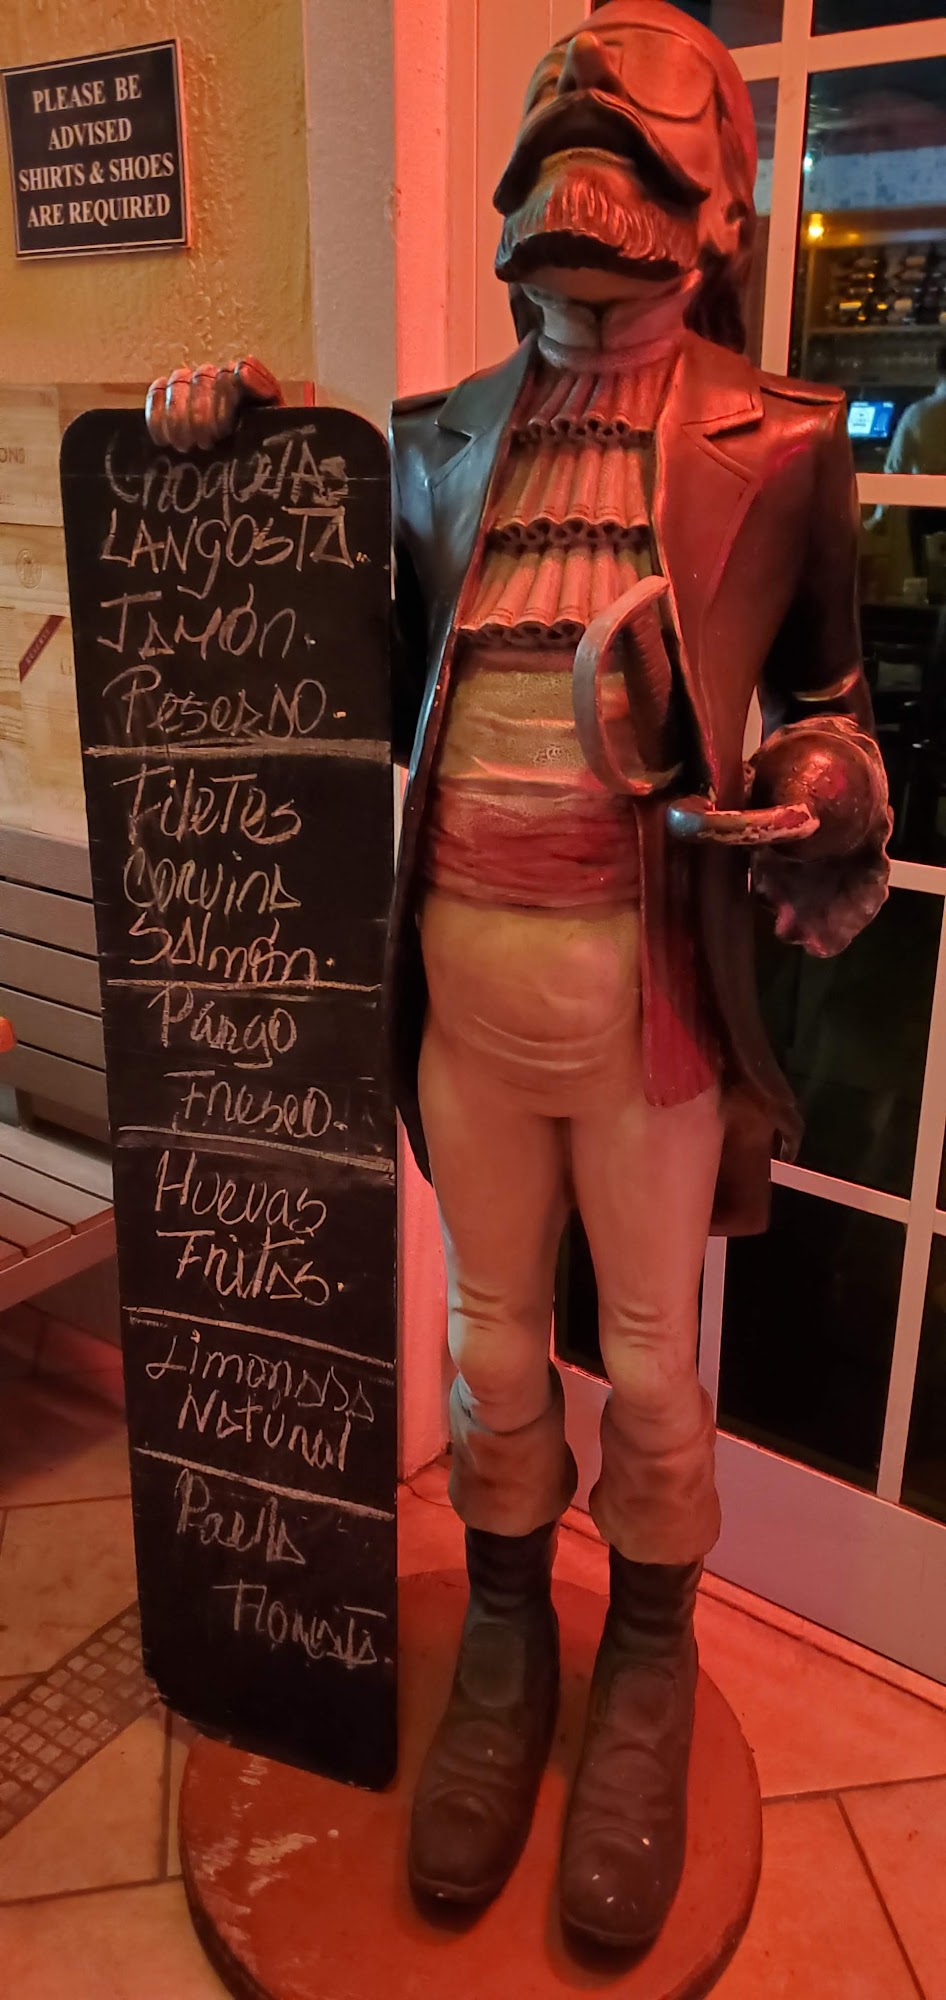 PLEASE BE
ADVISED
SHIRTS & SHOES
ARE REQUIRED
CroqueTAs
LANgOSTA.
JAMón.
Filetes
Corvina
SAlmón.
Pargo
Fresco.
Huevas
FritAs.
LimonADA
NAturAl
PaellA